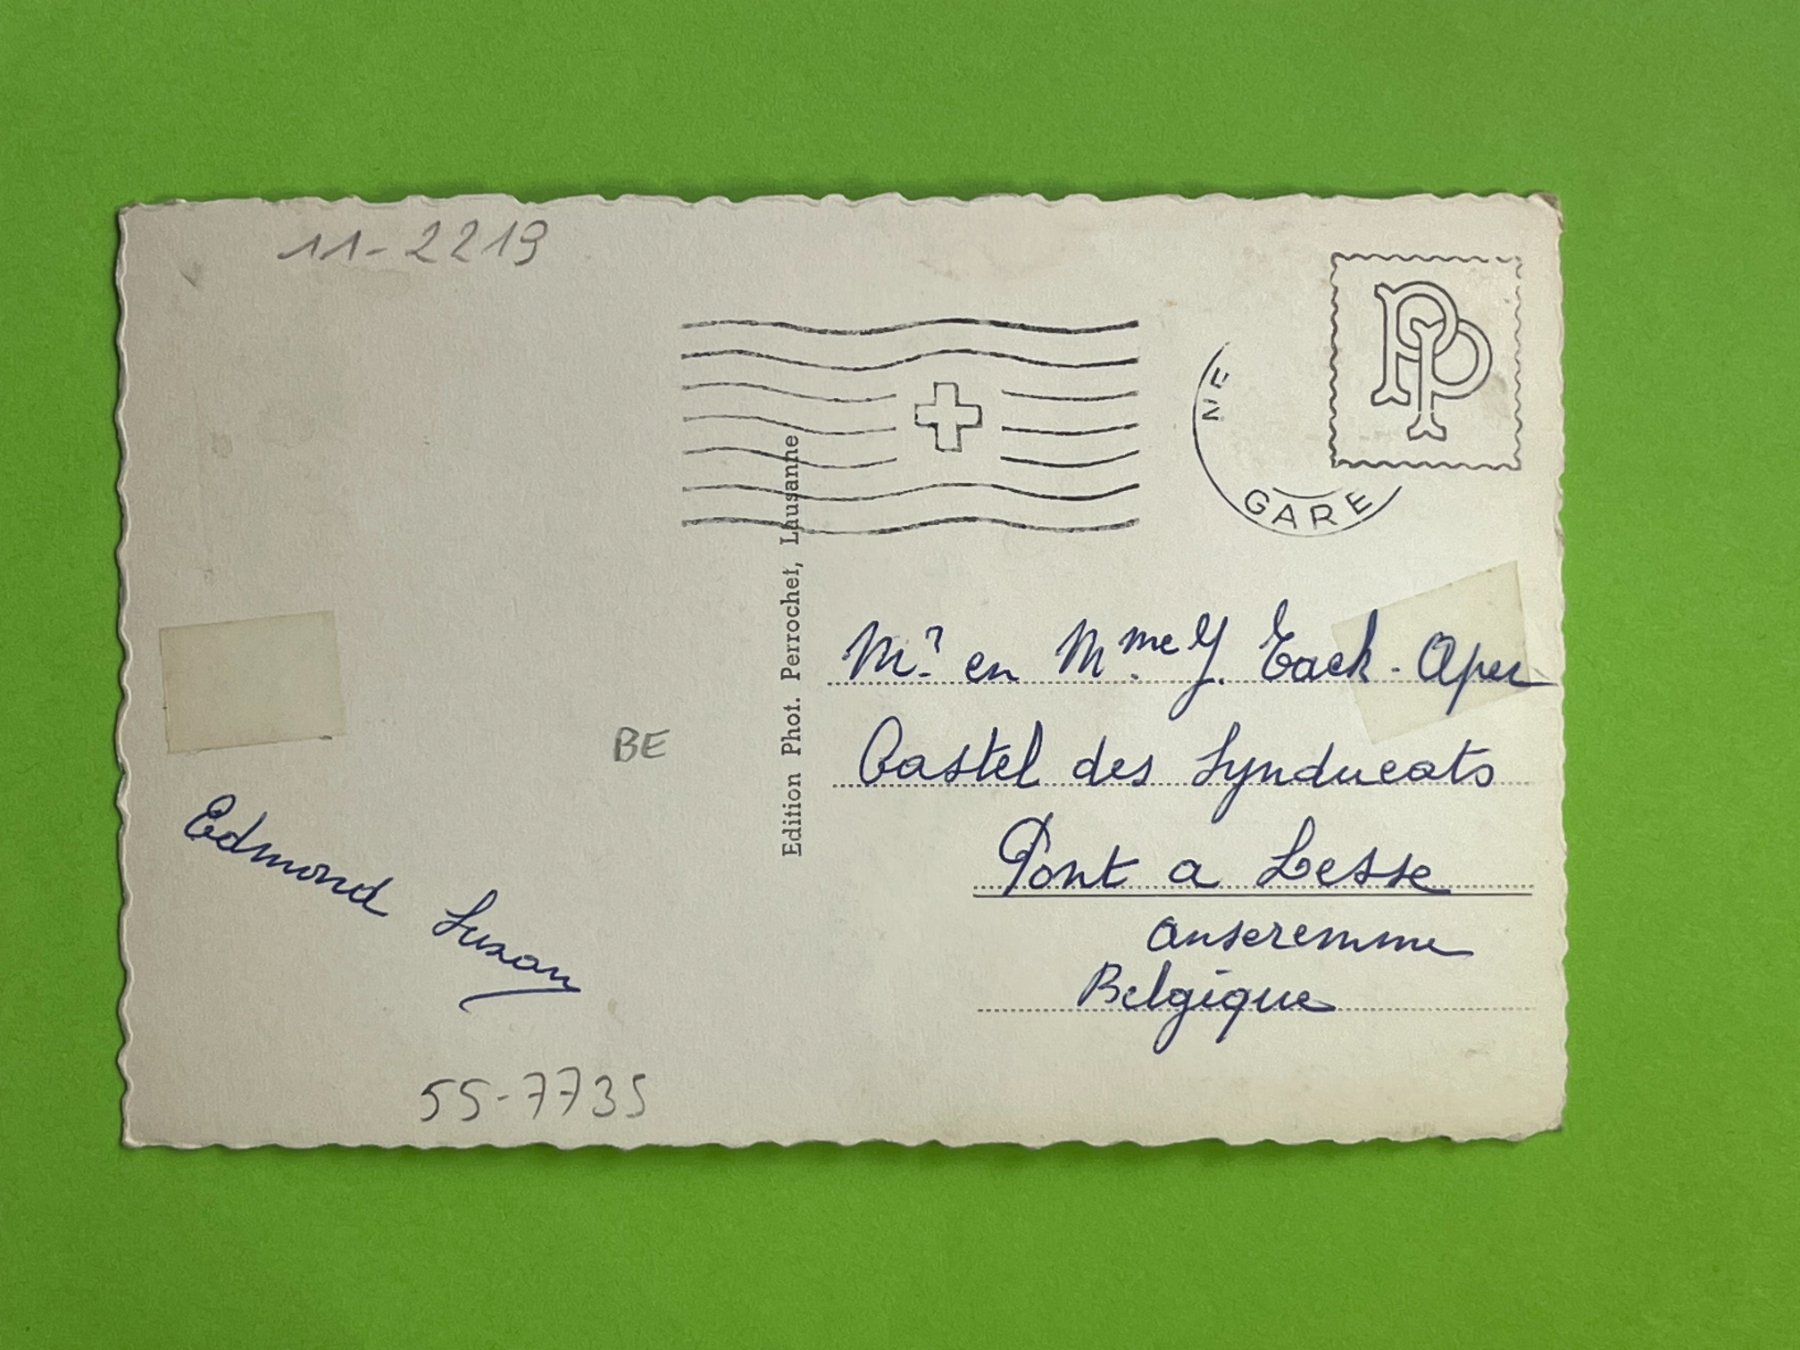 11-2219
PP
NE
GARE
Edition Phot. Perrochet, Lausanne
Mr. en Mme. Y. Tack-Aper
Castel des Synducats
Pont a Lesse
Anseremme
Belgique
BE
Edmond Suzan
55-7735